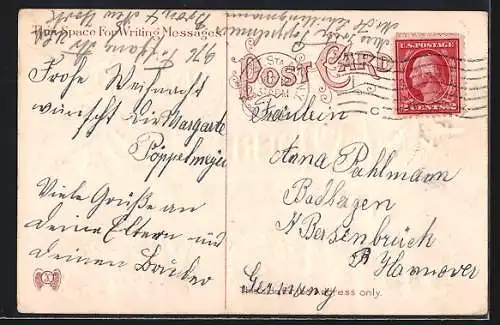 This Space For Writing Messages
Frohe Weihnacht
wünscht dir Margarte
Pöppelmeyer
Viele Grüße an
deine Eltern und
deinen Bruder
976 Tiffany
Bronx New York
POST CARD
U.S. POSTAGE
2 CENTS 2
Fräulein
Anna Pohlmann
Badbergen
Bersenbrück
Hannover
Germany
address only.